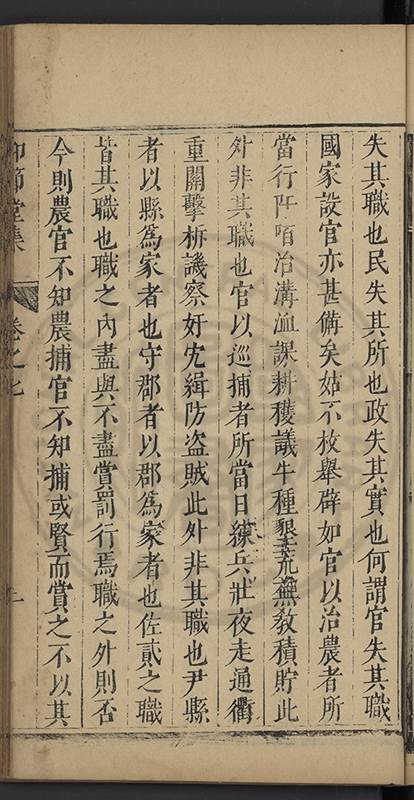 失其職也民失其所也政失其實也何謂官失其職
國家設官亦甚備矣姑不枚舉辟如官以治農者所
當行阡陌治溝洫課耕穫議牛種墾荒蕪教積貯此
外非其職也官以巡捕者所當日練兵壯夜走通衢
重關擊柝譏察奸宄緝防盜賊此外非其職也尹縣
者以縣爲家者也守郡者以郡爲家者也佐貳之職
皆其職也職之內盡與不盡賞罰行焉職之外則否
今則農官不知農捕官不知捕或賢而賞之不以其
仰節堂集
卷之七